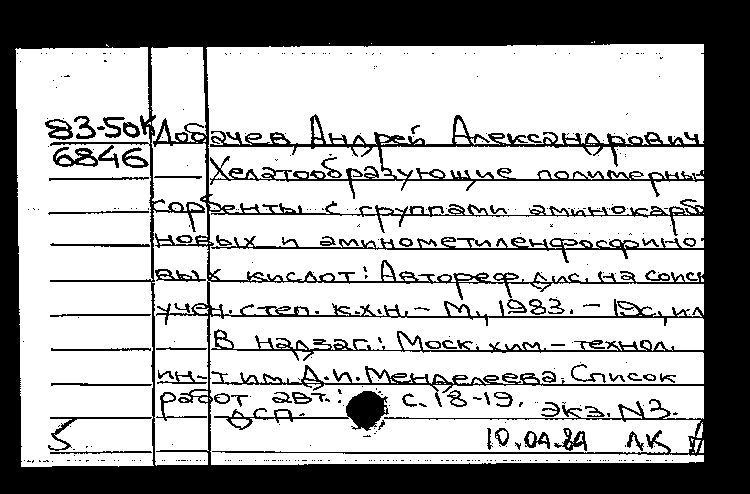 83-50к Лобачев, Андрей Александрович.
6846
Хелатообразующие полимерны
сорбенты с группами аминокарбо
новых и аминометиленфосфино-
вых кислот: Автореф. дис. на соиск
учен. степ. к.х.н. - М., 1983. - 19с, ил
В надзаг.: Моск. хим. - технол.
ин-т им. Д.И. Менделеева. Список
работ авт.: с. 18-19. экз. N3.
ДСП.
5 10.04.84 ЛК